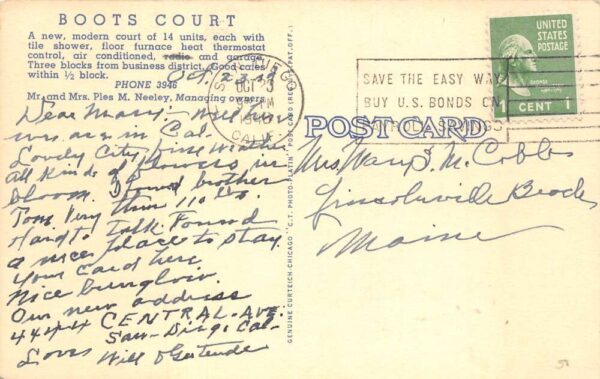 BOOTS COURT
A new, modern court of 14 units, each with
tile shower, floor furnace heat thermostat
control, air conditioned, radio and garage.
Three blocks from business district. Good cafes
within ½ block.
PHONE 3946
Mr. and Mrs. Ples M. Neeley, Managing owners
Dear Mary:
was in Cal.
Lovely City fine weather
All Kinds of flowers in
bloom. I found brother
Tom Very thin 110 lbs.
Hard to talk Found
a nice place to stay.
Your card here
Nice
Our new address
4444 CENTRAL-AVE.
San-Diego Cal-
Love Will & Gertrude
GENUINE CURTEICH-CHICAGO "C.T. PHOTO-PLATIN" POST CARD (REG. U.S. PAT. OFF.)
SAN DIEGO
OCT 3
CALIF.
SAVE THE EASY WAY
BUY U.S. BONDS ON
PAYROLL SAVINGS
UNITED
STATES
POSTAGE
CENT 1
POST CARD
Mrs. Mary S. McCobb
Lincolnville Beach
Maine